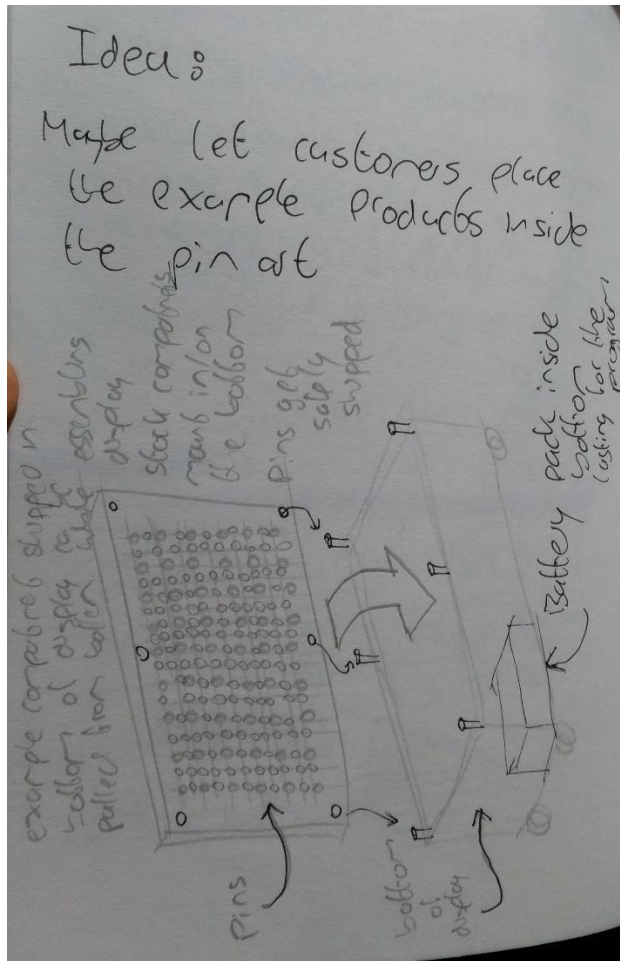 Idea:
Maybe let customers place
the example products inside
the pin art
example compatibles shipped in
bottom of display can be
pulled from bottom while assembling
display
stock
mount in/on
the bottom
Pins get
safely
shipped
pins
bottom
of
display
Battery pack inside
bottom
lasting for the
program